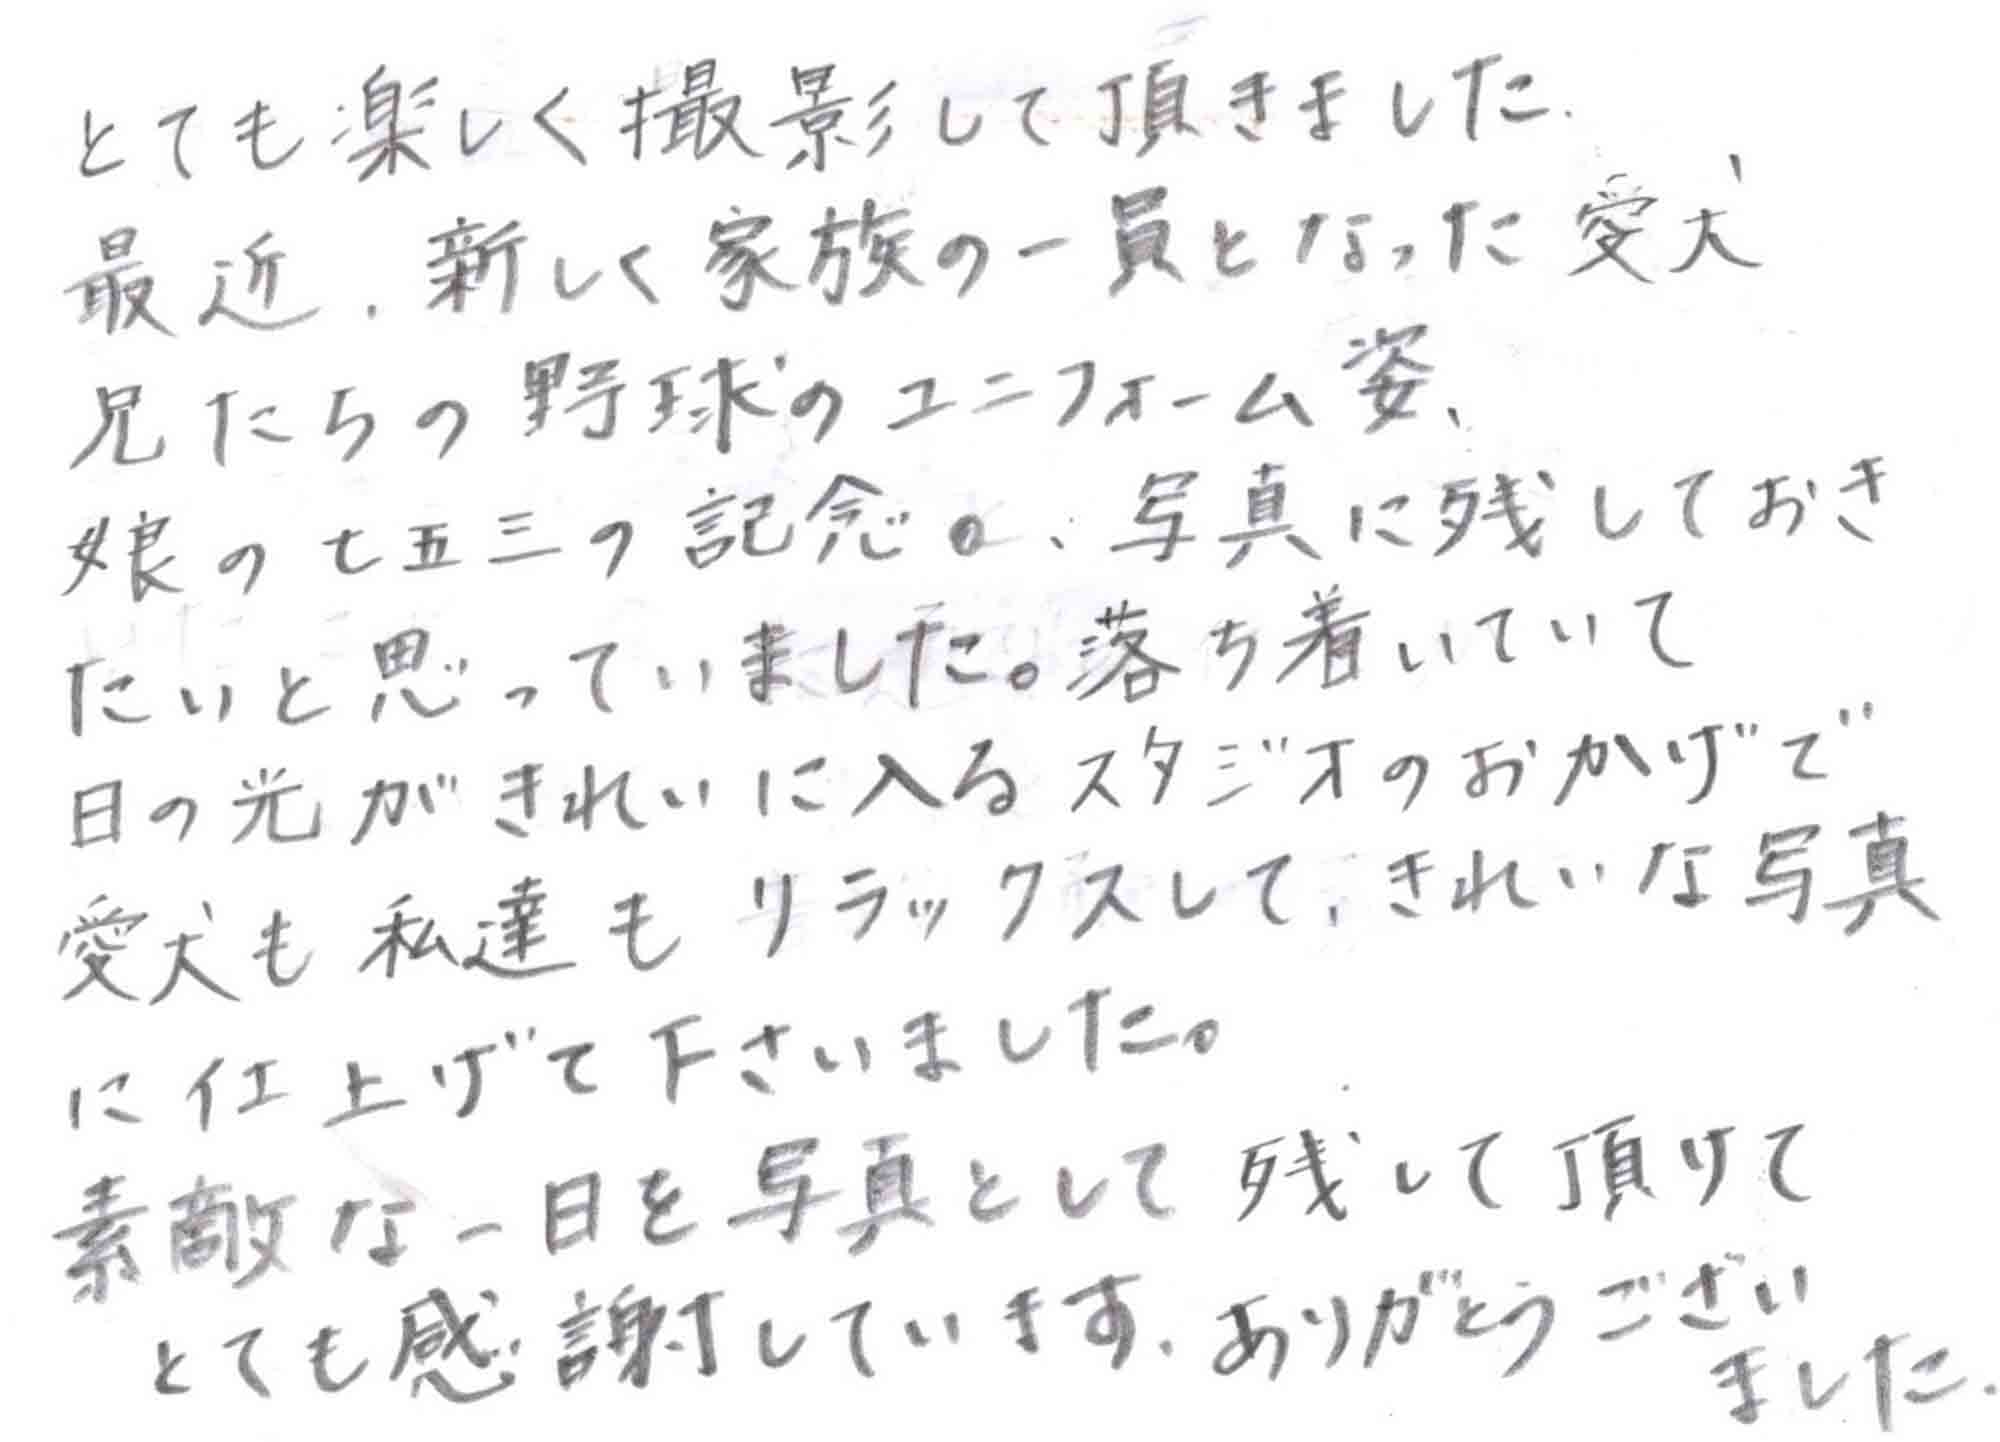 とても楽しく撮影して頂きました.
最近、新しく家族の一員となった愛犬
兄たちの野球のユニフォーム姿、
娘の七五三の記念。、写真に残しておき
たいと思っていました。落ち着いていて
日の光がきれいに入るスタジオのおかげで
愛犬も私達もリラックスして、きれいな写真
に仕上げて下さいました。
素敵な一日を写真として残して頂けて
とても感謝しています. ありがとうござい
ました.